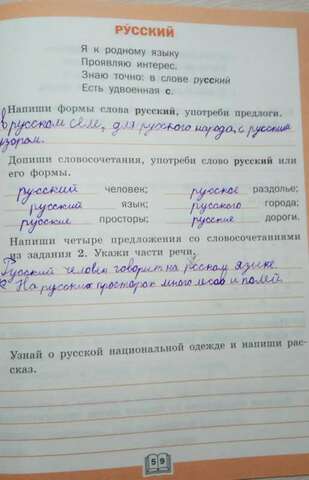 РУ́ССКИЙ
Я к родному языку
Проявляю интерес.
Знаю точно: в слове русский
Есть удвоенная с.
Напиши формы слова русский, употреби предлоги.
в русском селе, для русского народа, с русским
узором.
Допиши словосочетания, употреби слово русский или
его формы.
русский человек; русское раздолье;
русский язык; русского города;
русские просторы; русские дороги.
Напиши четыре предложения со словосочетаниями
из задания 2. Укажи части речи.
Русский человек говорит на русском языке.
На русских просторах много лесов и полей.
Узнай о русской национальной одежде и напиши рас-
сказ.
59